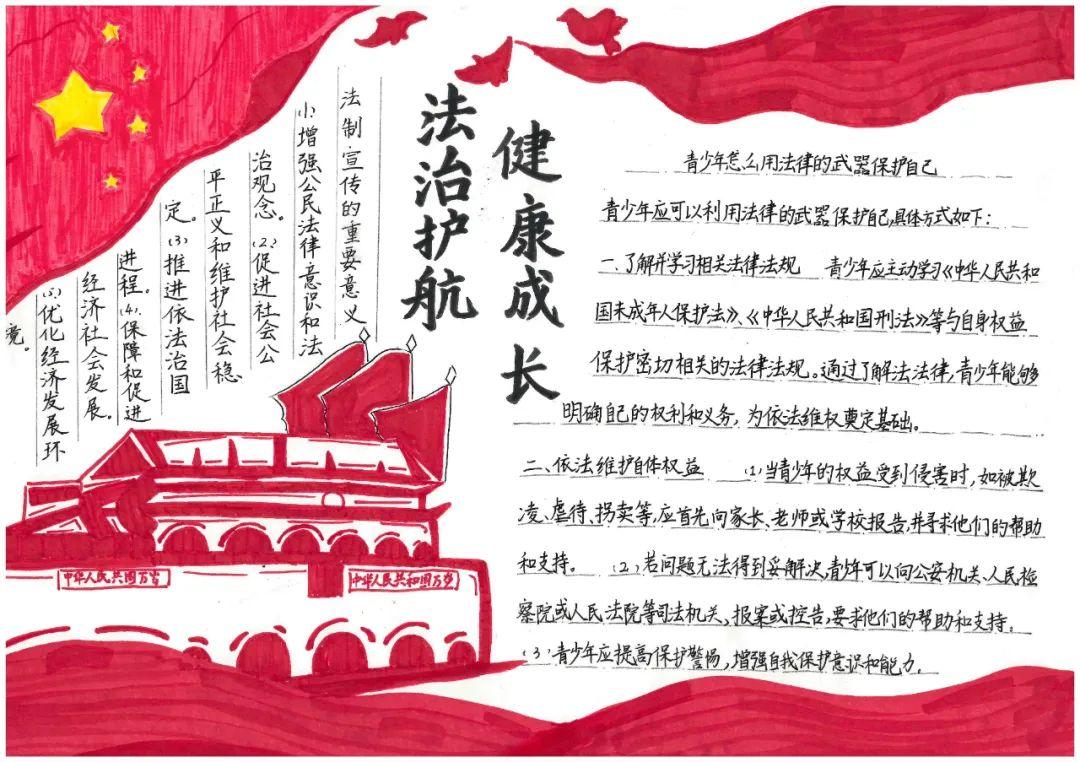 法治护航
健康成长
法制宣传的重要意义
(1)增强公民法律意识和法
治观念。(2)促进社会公
平正义和维护社会稳
定。(3)推进依法治国
进程。(4)保障和促进
经济社会发展。
(5)优化经济发展环
境。
中华人民共国万岁
中华人民共和国万岁
青少年怎么用法律的武器保护自己
青少年应可以利用法律的武器保护自己,具体方式如下:
一、了解并学习相关法律法规 青少年应主动学习《中华人民共和
国未成年人保护法》、《中华人民共和国刑法》等与自身权益
保护密切相关的法律法规。通过了解法法律,青少年能够
明确自己的权利和义务,为依法维权奠定基础。
二、依法维护自体权益 (1)当青少年的权益受到侵害时,如被欺
凌、虐待、拐卖等,应首先向家长、老师或学校报告,并寻求他们的帮助
和支持。 (2)若问题无法得到妥解决,青少年可以向公安机关、人民检
察院或人民法院等司法机关,报案或控告,要求他们的帮助和支持。
(3)青少年应提高保护警惕,增强自我保护意识和能力.